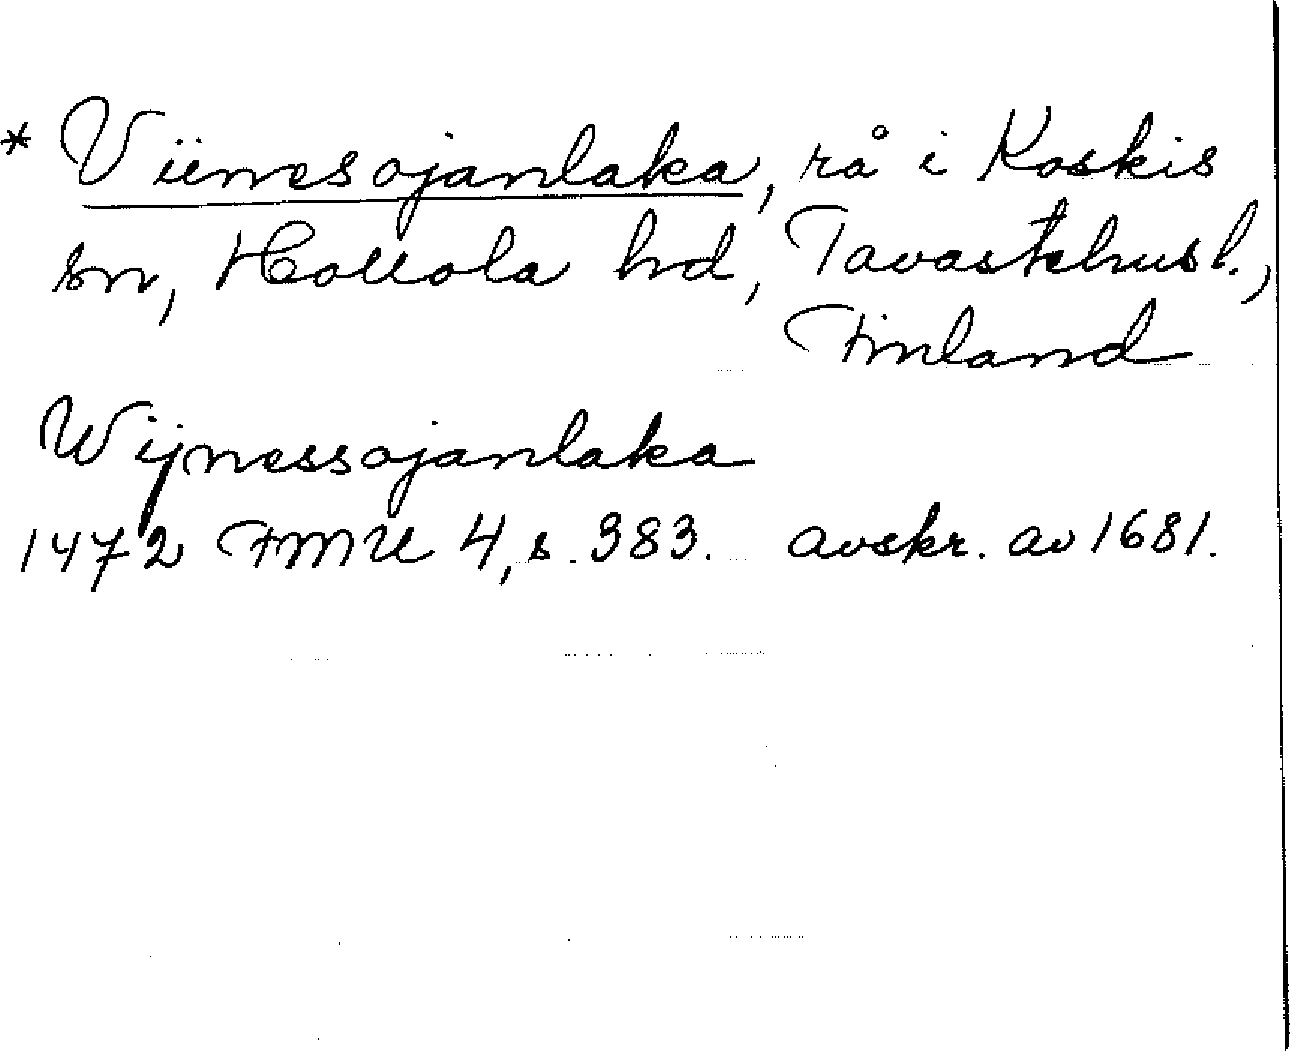 * Viinesojanlaka, rå i Koskis
sn, Hollola hd, Tavastehus l.,
Finland
Wijnessojanlaka
1472 FMU 4, s. 383. avskr. av 1681.